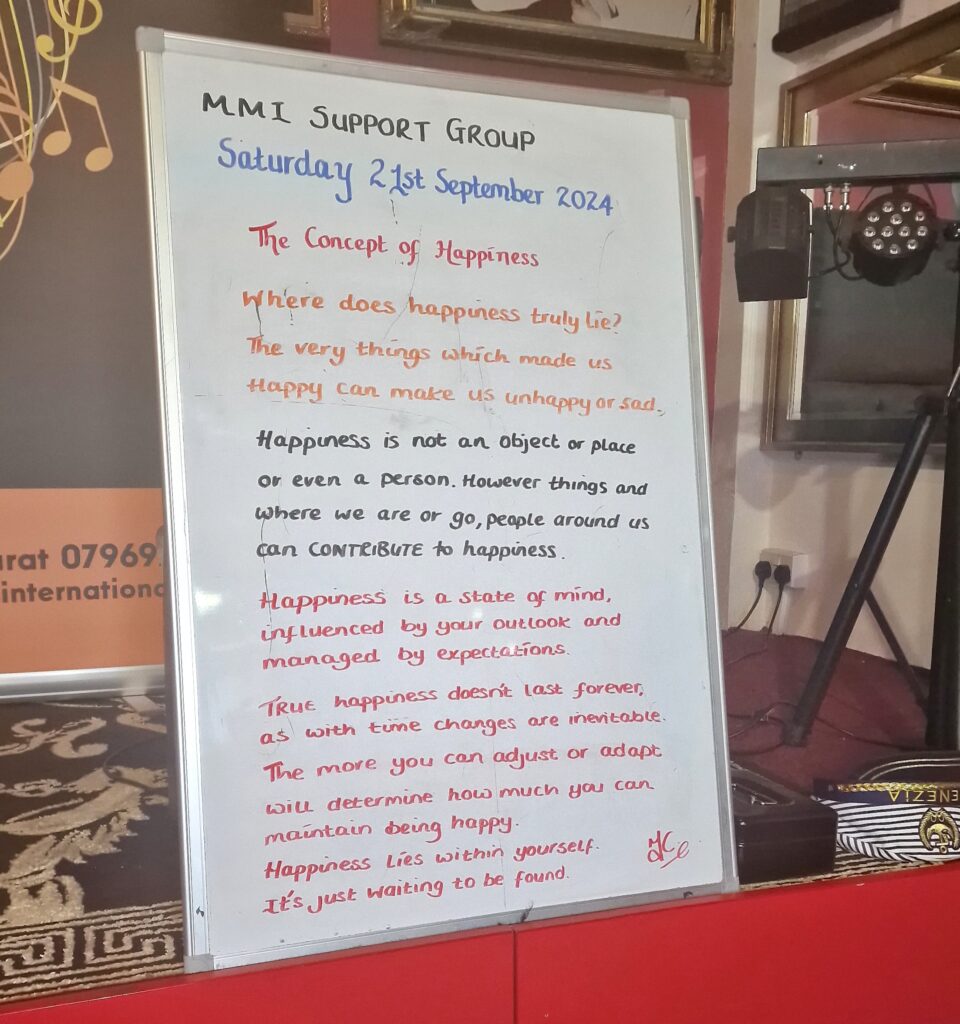 MMI SUPPORT GROUP
Saturday 21st September 2024
The Concept of Happiness
Where does happiness truly lie?
The very things which made us
Happy can make us unhappy or sad.
Happiness is not an object or place
or even a person. However things and
where we are or go, people around us
can CONTRIBUTE to happiness.
Happiness is a state of mind,
influenced by your outlook and
managed by expectations.
TRUE happiness doesn't last forever,
as with time changes are inevitable.
The more you can adjust or adapt
will determine how much you can
maintain being happy.
Happiness lies within yourself.
It's just waiting to be found.
urat 07969
internationa
ENEZIA